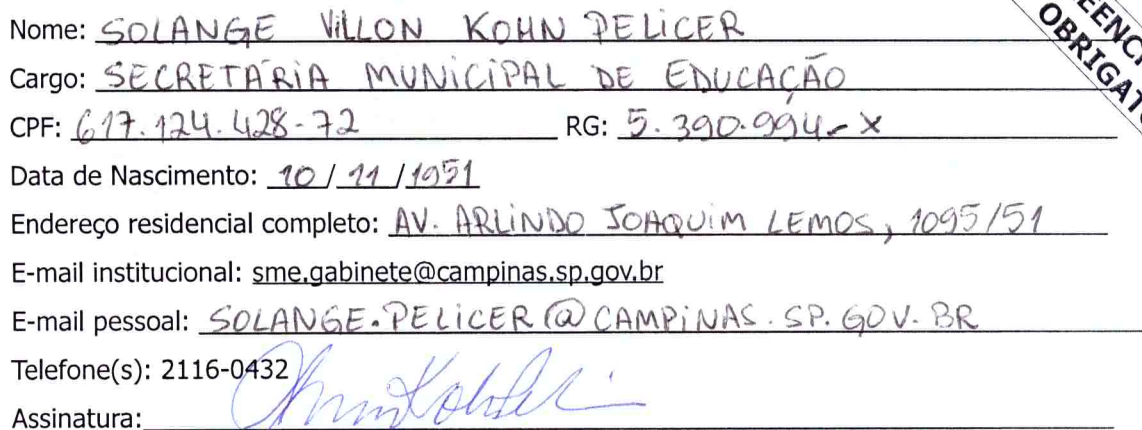 Nome: SOLANGE VILLON KOHN PELICER
Cargo: SECRETÁRIA MUNICIPAL DE EDUCAÇÃO
CPF: 617.124.428-72 RG: 5.390.994-X
Data de Nascimento: 10 / 11 / 1951
Endereço residencial completo: AV. ARLINDO JOAQUIM LEMOS, 1095/51
E-mail institucional: sme.gabinete@campinas.sp.gov.br
E-mail pessoal: SOLANGE.PELICER@CAMPINAS.SP.GOV.BR
Telefone(s): 2116-0432
Assinatura: